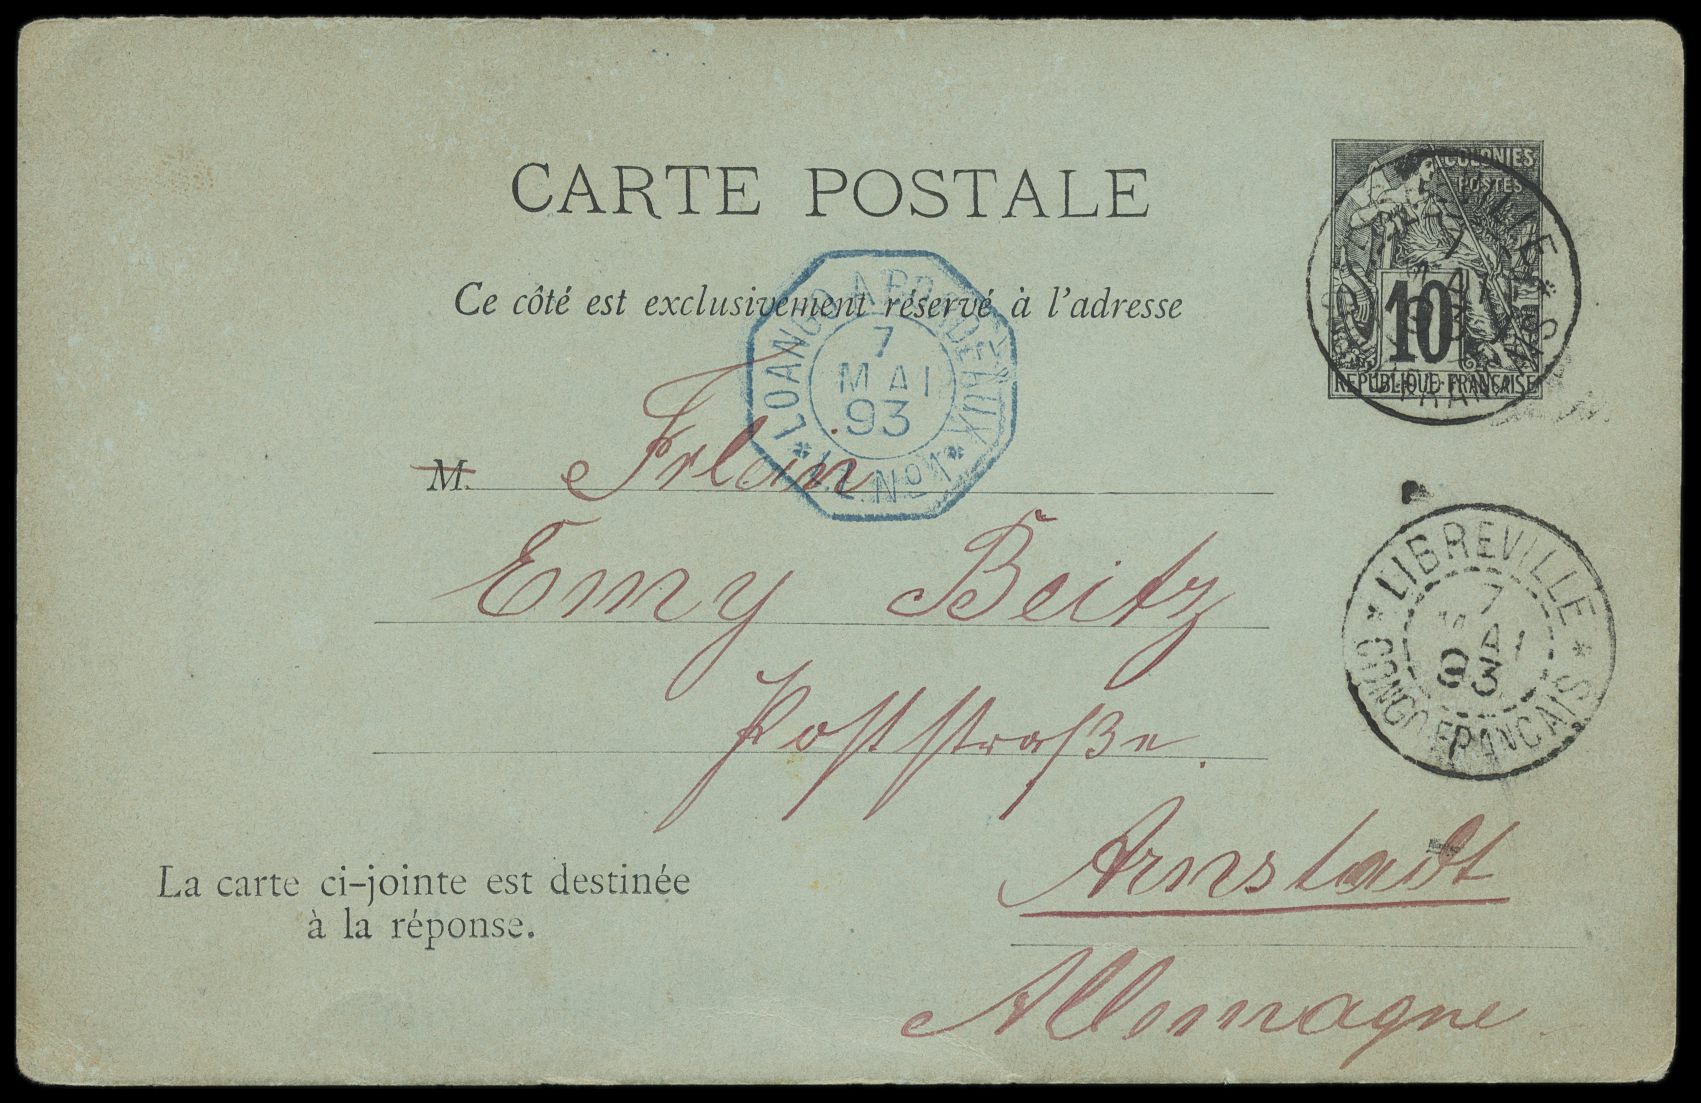 CARTE POSTALE
Ce côté est exclusivement réservé à l'adresse
COLONIES
POSTES
10
REPUBLIQUE FRANCAISE
LOANGO A BORDEAUX
7
MAI
93
* L.L. No 1 *
M. Frlein
Emy Beitz
Poststraße.
Arnstadt
Allemagne
* LIBREVILLE *
7
MAI
93
CONGO FRANCAIS
La carte ci-jointe est destinée
à la réponse.